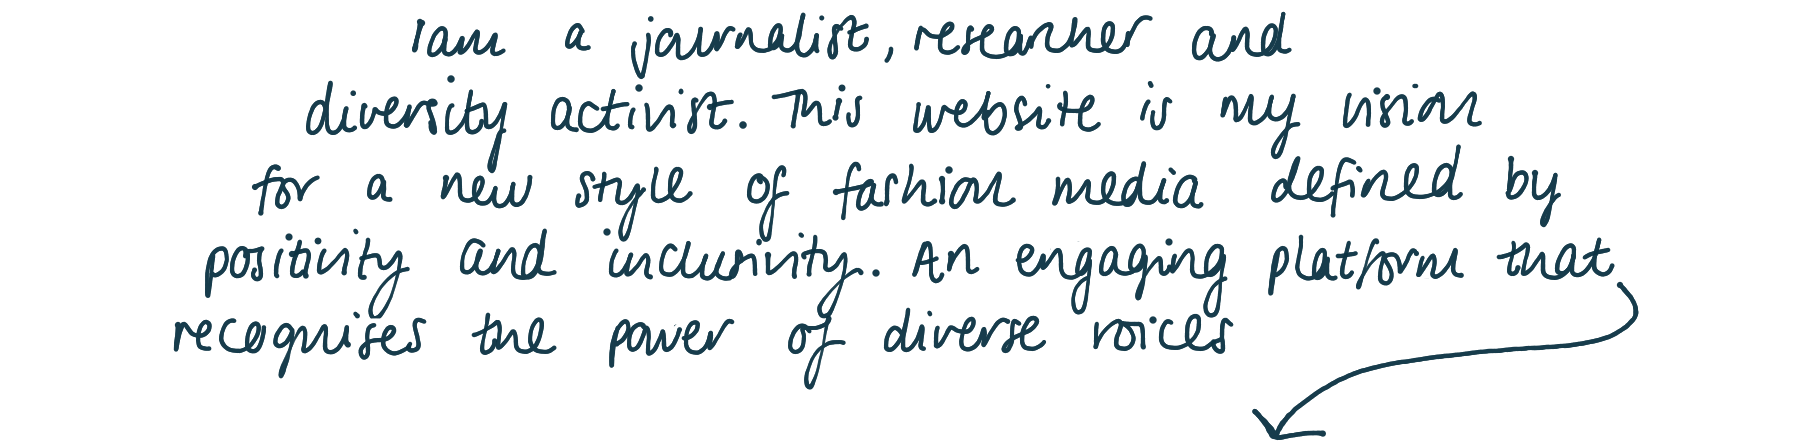 I am a journalist, researcher and
diversity activist. This website is my vision
for a new style of fashion media defined by
positivity and inclusivity. An engaging platform that
recognises the power of diverse voices